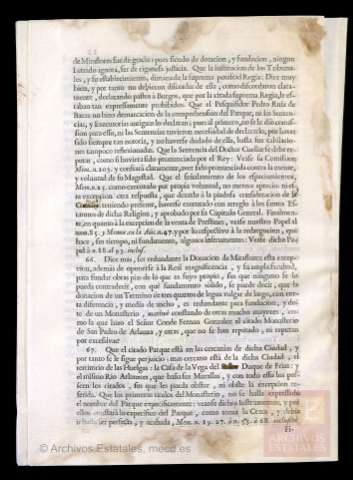 de Miraflores fue de gracia: pues siendo de donacion, y fundacion, ningun
Letrado ignora, ser de rigurosa justicia. Que la institucion de los Tribuna-
les, y su establecimiento, dimana de la suprema potestad Regia: Dice muy
bien, y por tanto no debieran discordar de esto, como discordaron clara-
mente, declarando pastos a Burgos, que por la citada suprema Regia, es-
taban tan expressamente prohibidos. Que el Pesquisidor Pedro Ruiz de
no hizo demarcacion de la comprehension del Parque, ni las Senten-
cias, y Executorias antiguas lo declaran: pues al primero, no se le dió comis-
sion para esso, ni las Sentencias tuvieron necesidad de declararlo, por haver
sido siempre tan notorio, y no haverse dudado de ello, hasta las
nes tampoco reflexionadas. Que la Sentencia del Doctor Cuellar se debe re-
putar, como si huviera sido pronunciada por el Rey: Vease su Comission
Mem. n.105. y constará claramente, aver sido pronunciada contra la mente,
y voluntad de su Magestad. Que el señalamiento de los
Mem. n.15. como executado por propia voluntad, no merece aprecio: ni es-
ta excepcion otra respuesta, que acordar à la piadosa consideracion de
teniendo presente, haverse executado con arreglo à los santos Es-
tatutos de dicha Religion, y aprobado por su Capitulo General. Finalmen-
te, en quanto à la excepcion de la venta de Presilnes, vease nuestro Papel al
num.85. y Memor. en los Ad. n.47. y por lo respectivo à la redarguicion, que
hace, sin tiempo, ni fundamento, algunos instrumentos: Vease dicho Pa-
pel à n.88. al 93. inclus.
66. Dice mas, ser redundante la Donacion de Miraflores esta excep-
cion, además de oponerse à la Real magnificencia, y su amplia facultad,
para fundar obras pias de lo que es suyo propio, sin que ninguno se lo
pueda contradecir, con què fundamento solido, se puede decir, que la
donacion de un Termino de tres quartos de legua vulgar de largo, con tan-
ta diferencia, y media de ancho, es redundante para fundacion, y do-
te de un Monasterio, maximè constando de otras mucho mayores, co-
mo la que hizo el Señor Conde Fernan Gonzalez al citado Monasterio
de San Pedro de Arlanza, y otras, que no se han reputado, ni reputan
por excessivas?
67. Que el citado Parque está en las cercanias de dicha Ciudad, y
por tanto se le sigue perjuicio: mas cercano está de la dicha Ciudad, el
territorio de las Huelgas: la Casa de la Vega del Señor Duque de Frias: y
el mismo Rio Arlanzon, que baña sus Murallas, y con todo esso los po-
seen los citados, sin que les pueda obstar, ni obste la excepcion re-
ferida. Que los primeros titulos del Monasterio, no se halla expressado
el nombre del Parque especificamente: veanse dichos Instrumentos, y por
ellos constará lo especifico del Parque, como toma la Cerca, y
n. 19. 27. 50. 53. 68. inclusivè.
Es-
© Archivos Estatales, mecd.es
ARCHIVOS
ESTATALES